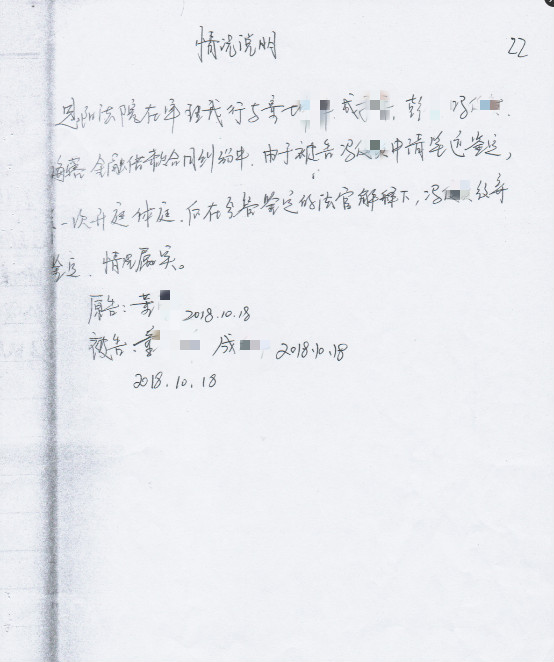 情况说明
22
恩阳法院在审理我行与 成 彭 冯
金融借款合同纠纷中,由于被告冯 申请笔迹鉴定,
一次开庭休庭.后在 鉴定的法官解释下,冯
鉴定、情况属实。
原告: 2018.10.18
被告: 成 2018.10.18
2018.10.18